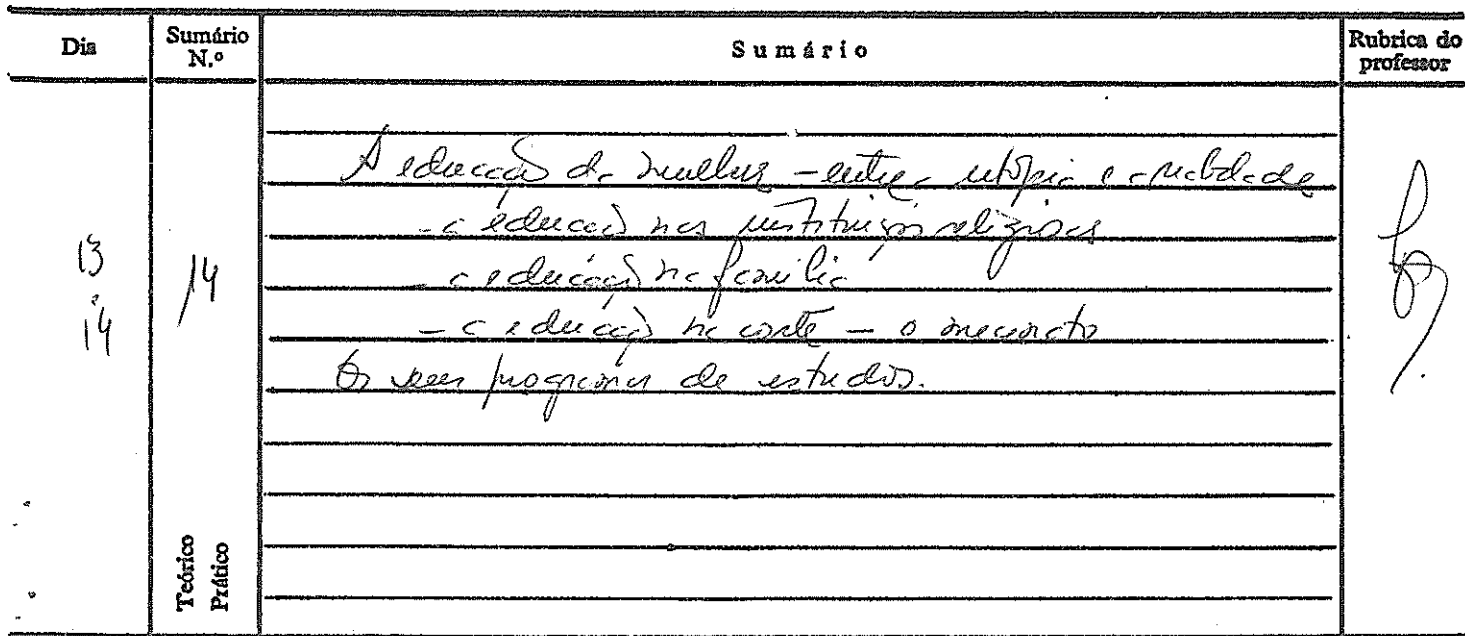 Dia
Sumário N.º
Sumário
Rubrica do professor
13
14
14
A educação da mulher - entre a utopia e a realidade
- a educação nas instituições religiosas
- a educação na família
- a educação na corte - o mecenato
Os seus programas de estudos.
Teórico
Prático